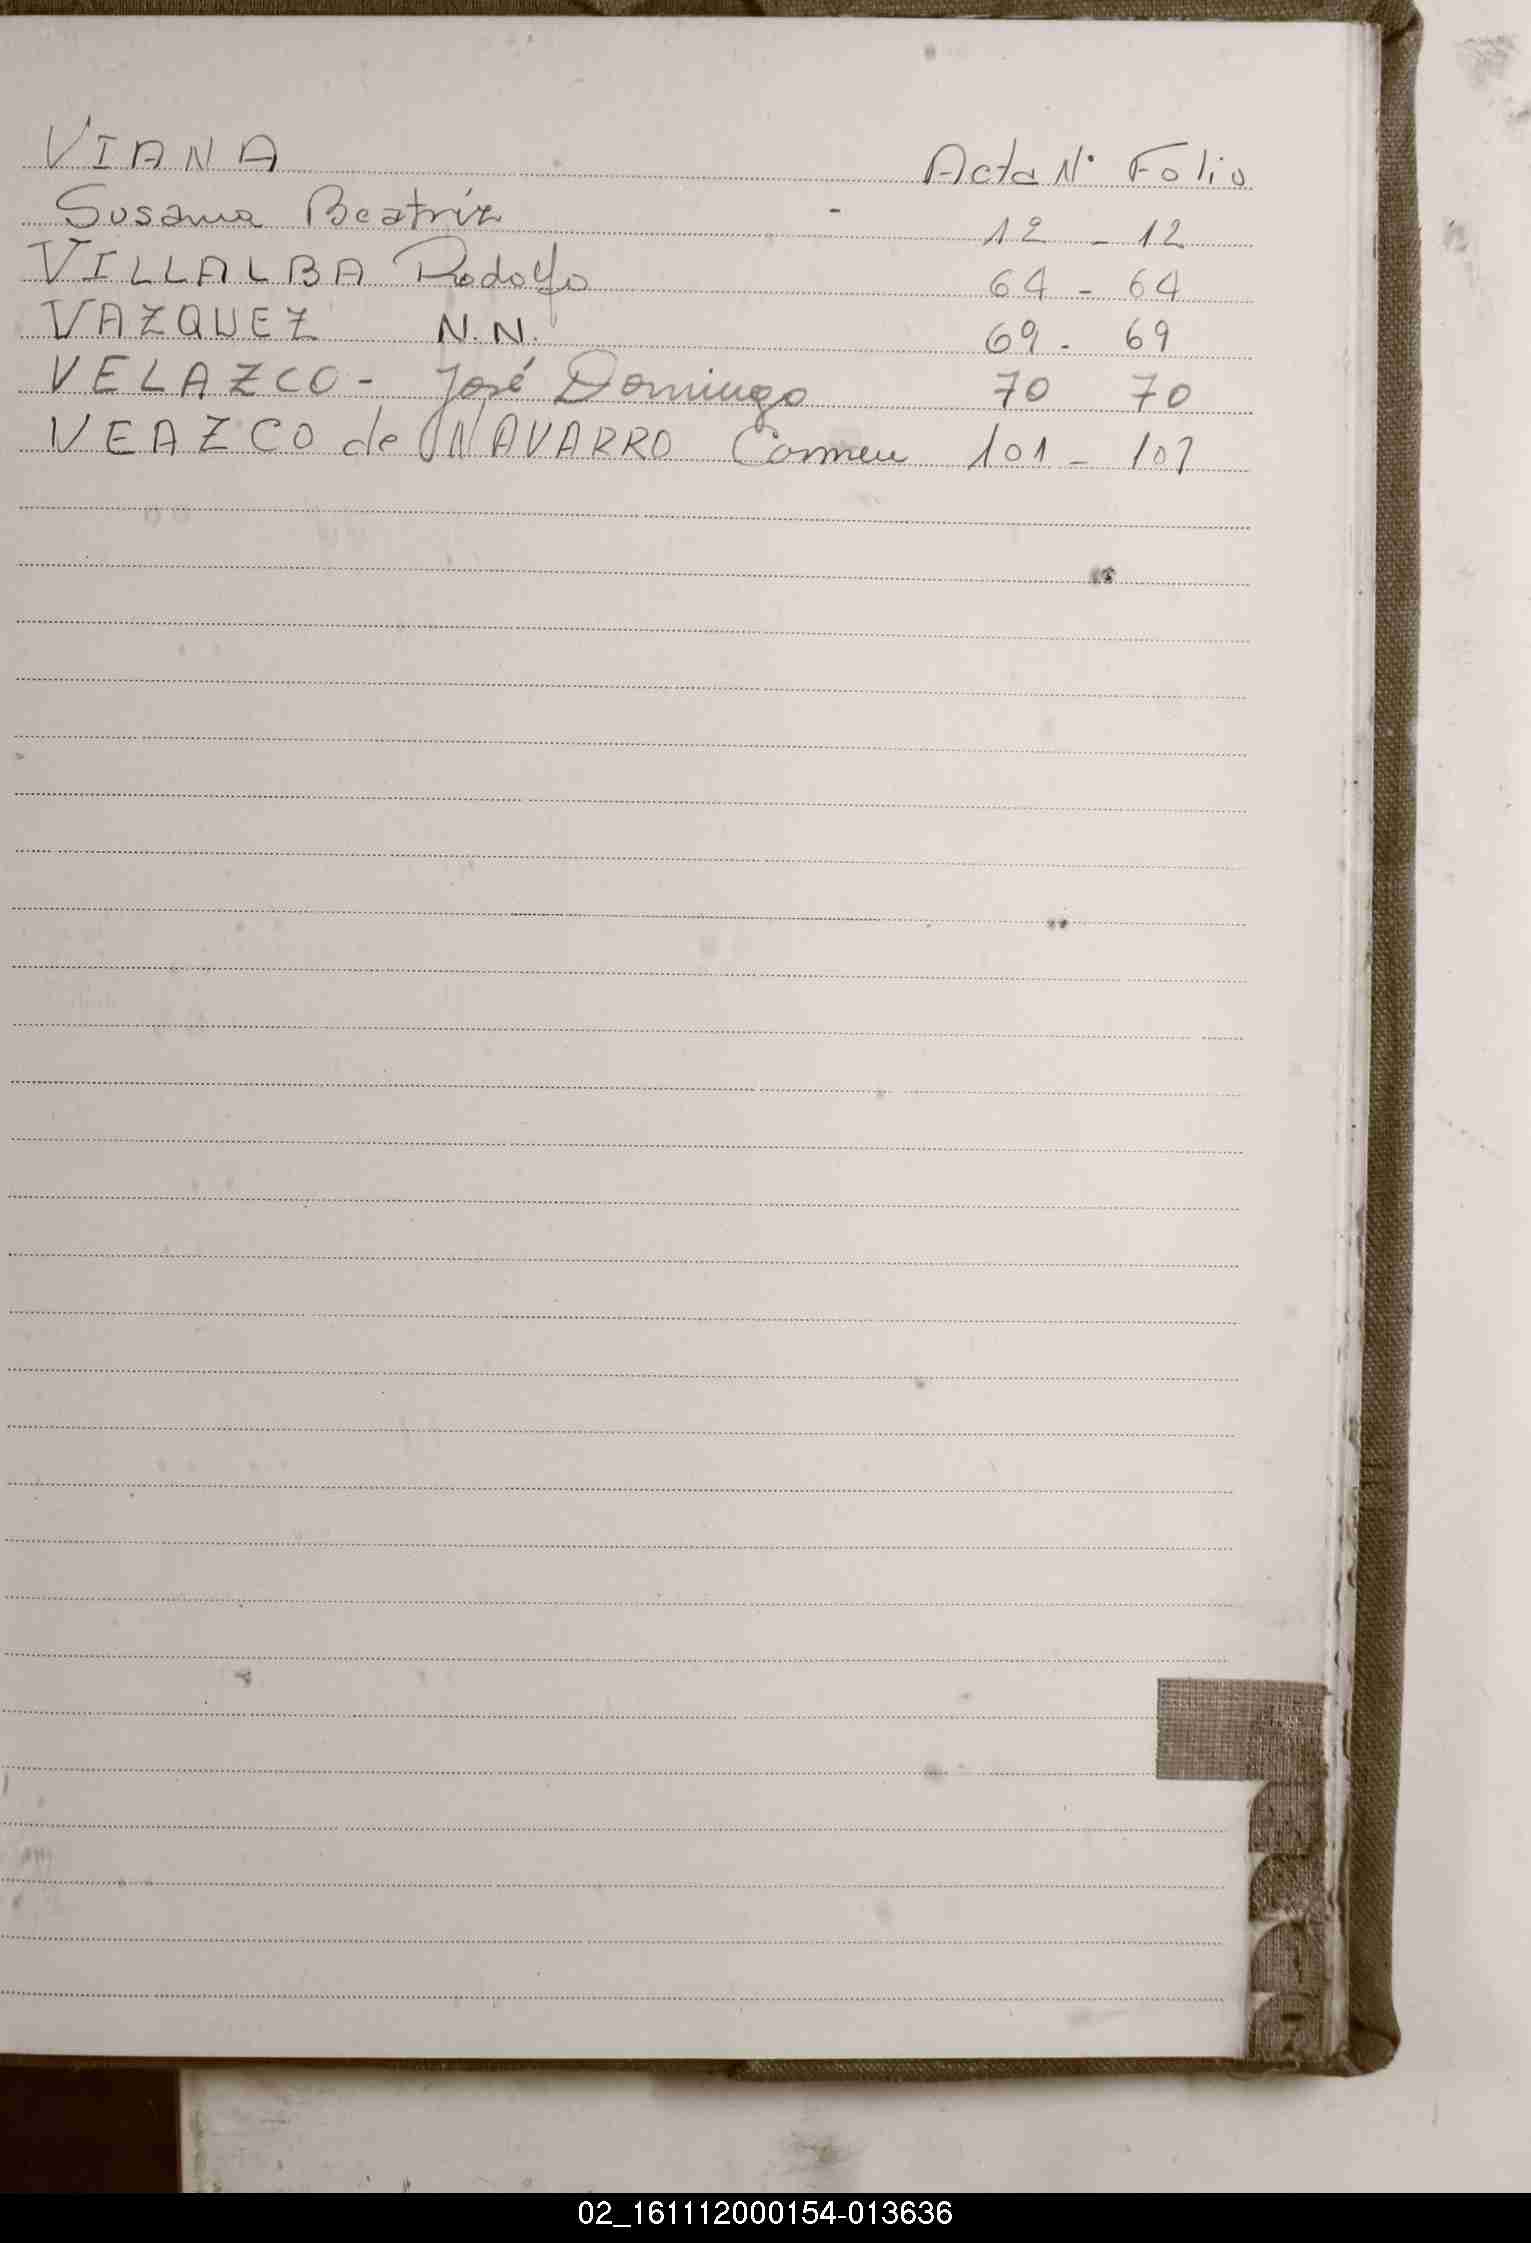 VIANA Acta N° Folio
Susana Beatríz - 12 - 12
VILLALBA Rodolfo 64 - 64
VAZQUEZ N.N. 69 - 69
VELAZCO - José Domingo 70 70
VEAZCO de NAVARRO Carmen 101 - 101
02_161112000154-013636